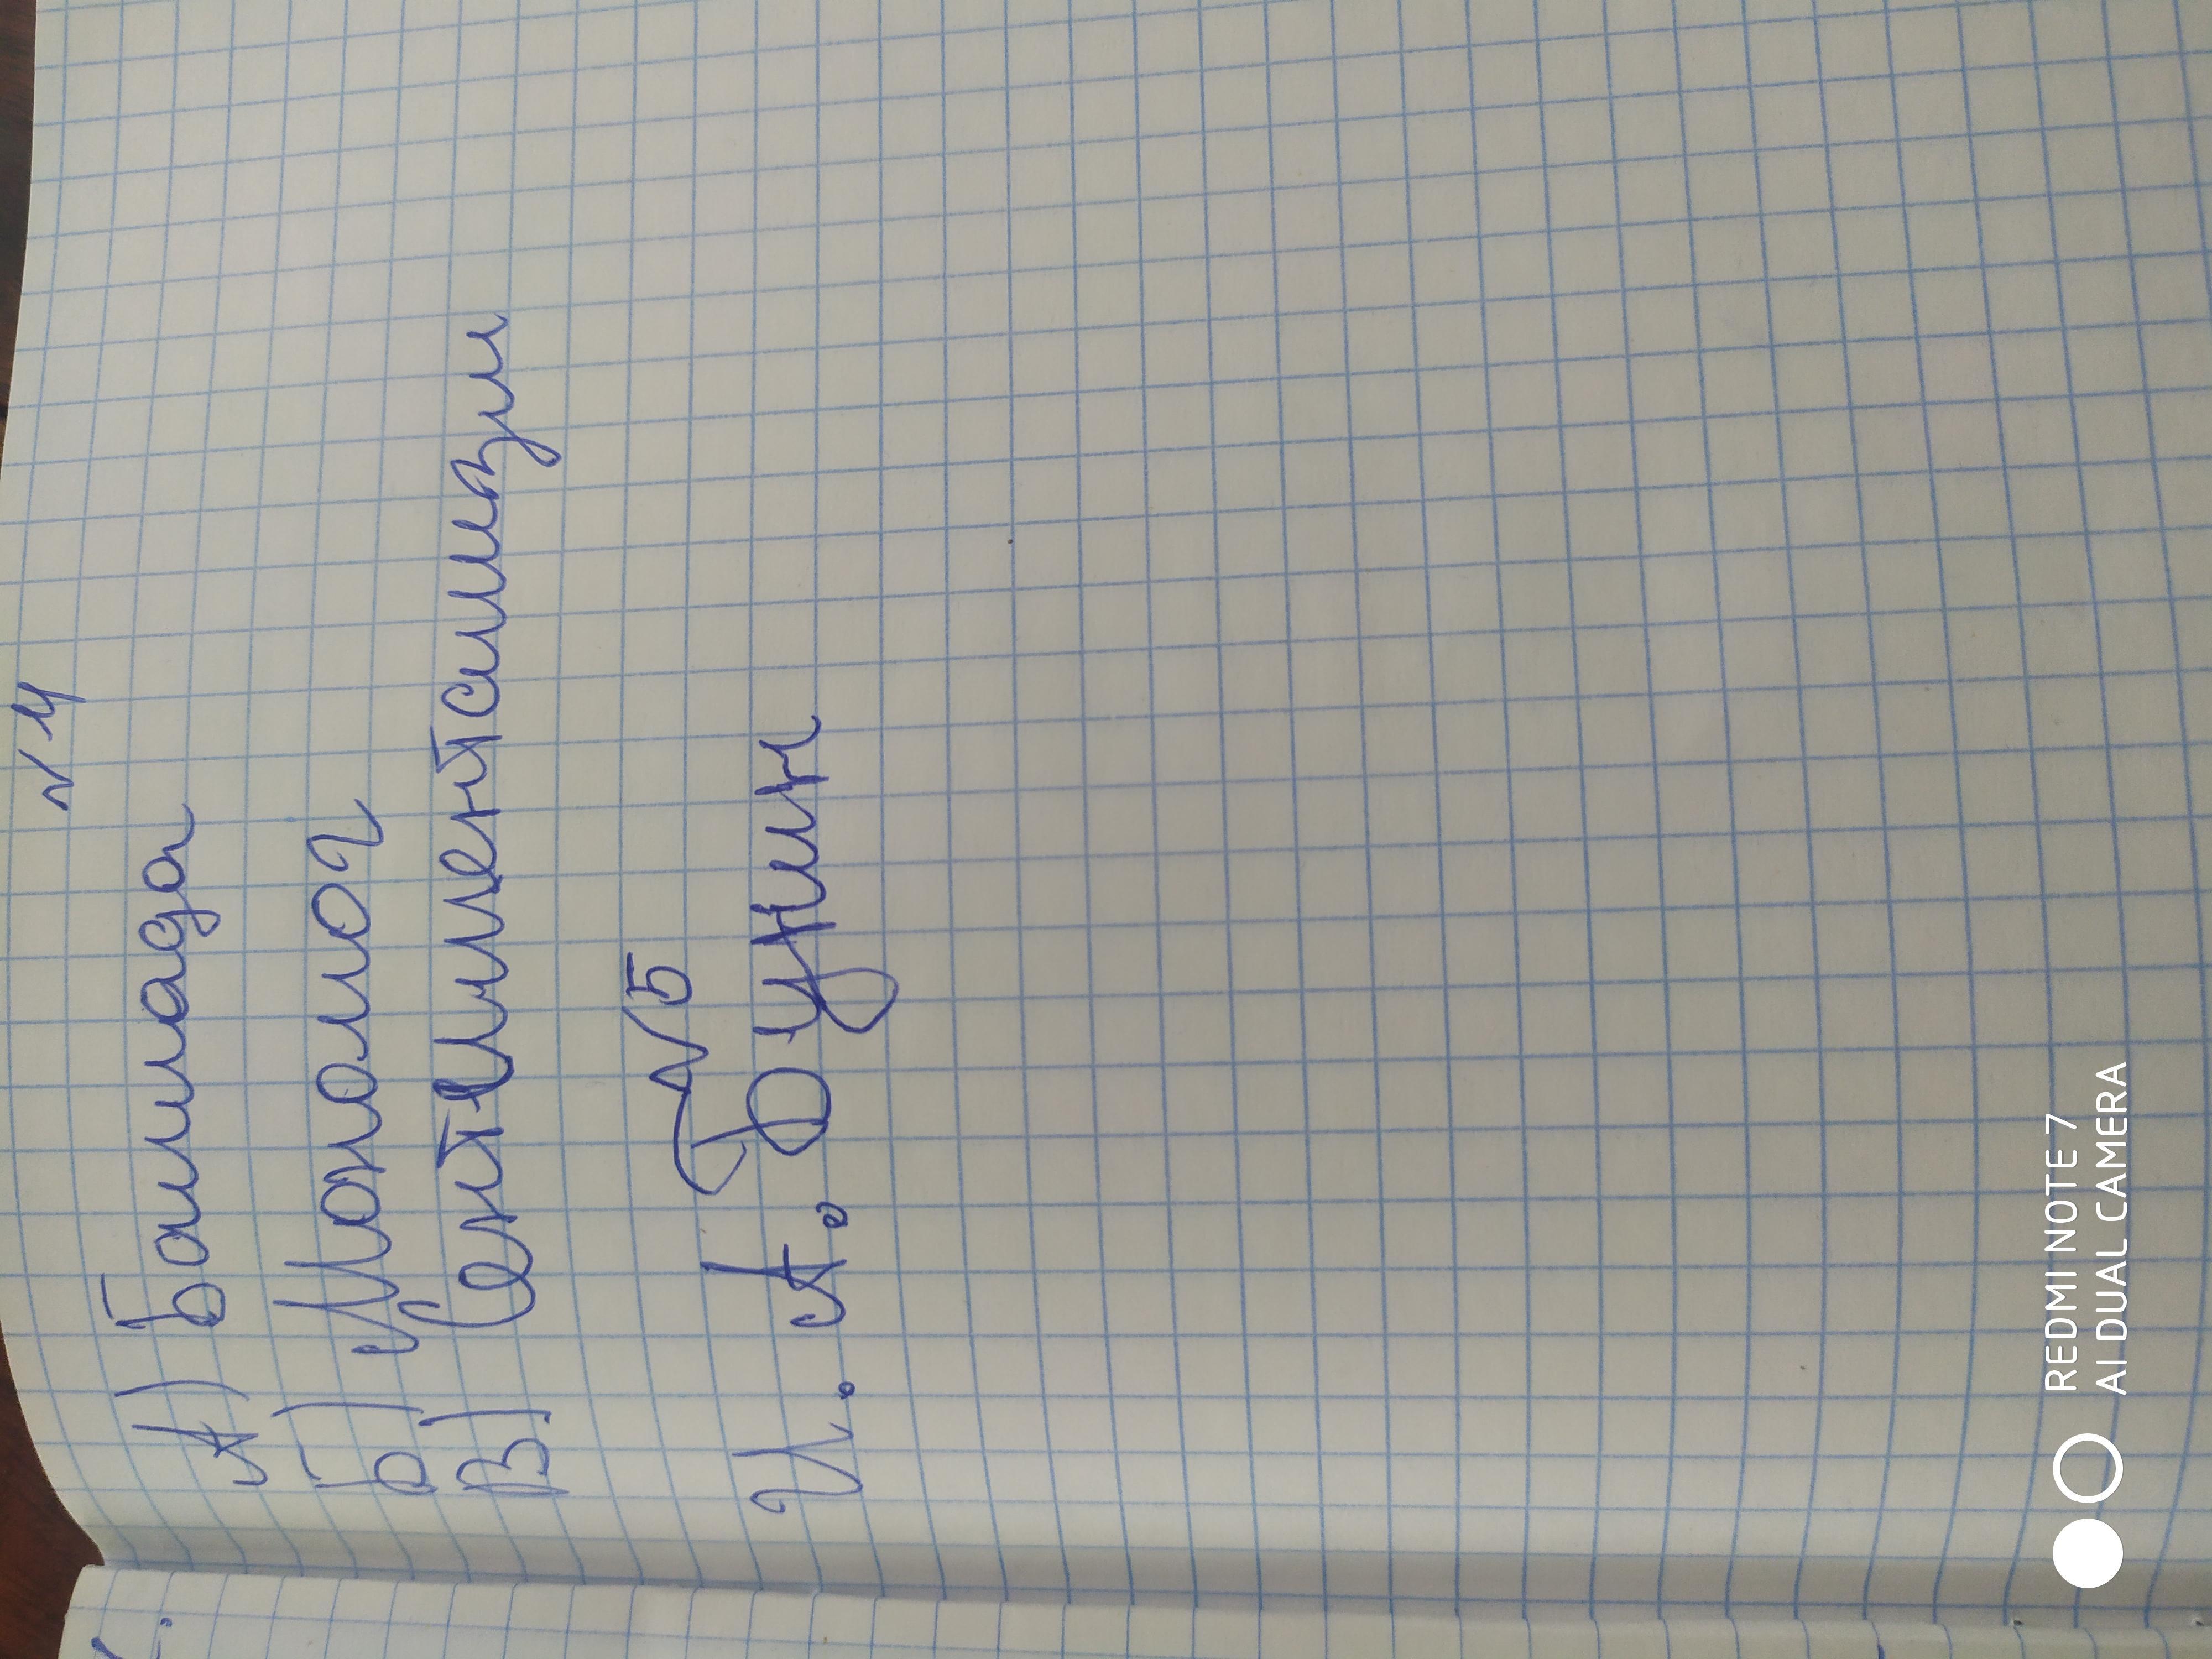 №4
А) Баллада
Б) Монолог
В) Сентиментализм
№5
И. А. Бунин
REDMI NOTE 7
AI DUAL CAMERA